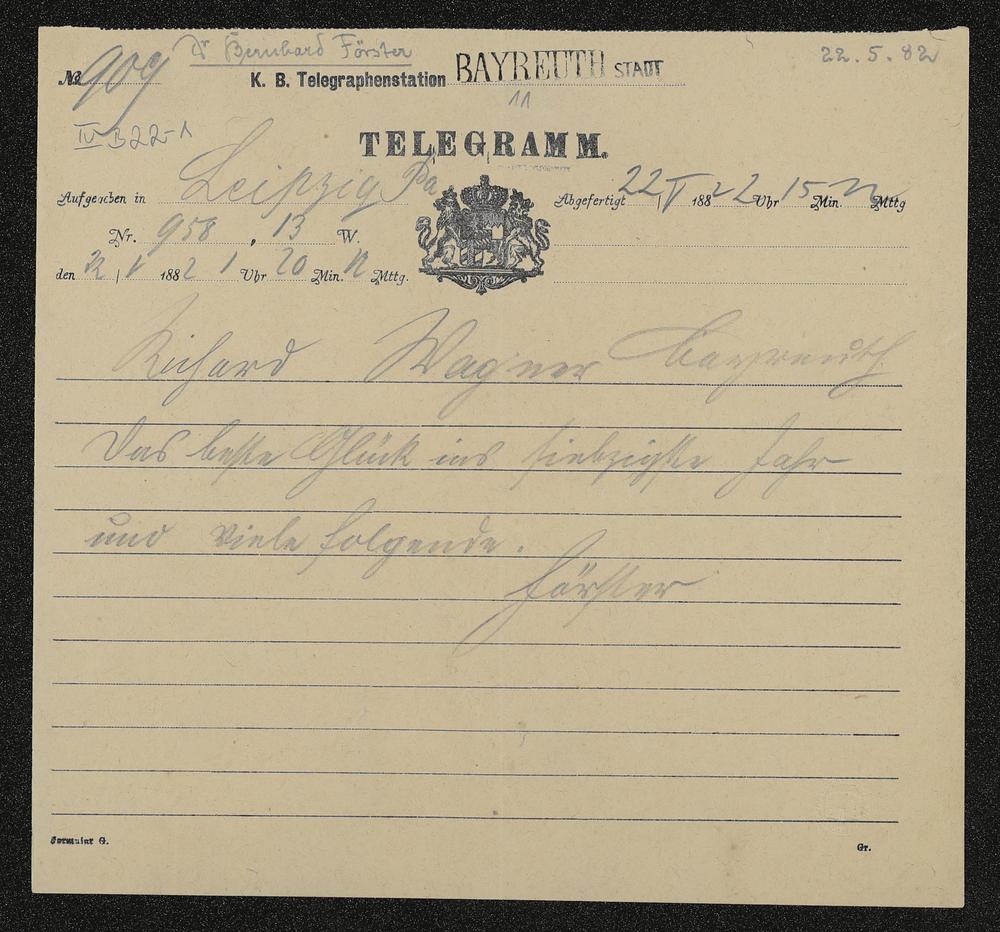 Dr Bernhard Förster
22.5.82
No 909
K. B. Telegraphenstation BAYREUTH STADT
11
IV B 22-1
TELEGRAMM.
Aufgegeben in Leipzig
Abgefertigt 22/V 1882 2 Uhr 15 Min. N Mttg
Nr. 958, 13 W.
den 22/V 1882 1 Uhr 20 Min. N Mttg.
Richard Wagner Bayreuth
Das beste Glück ins siebzigste Jahr
und viele folgende.
Förster
Formular G.
Gr.